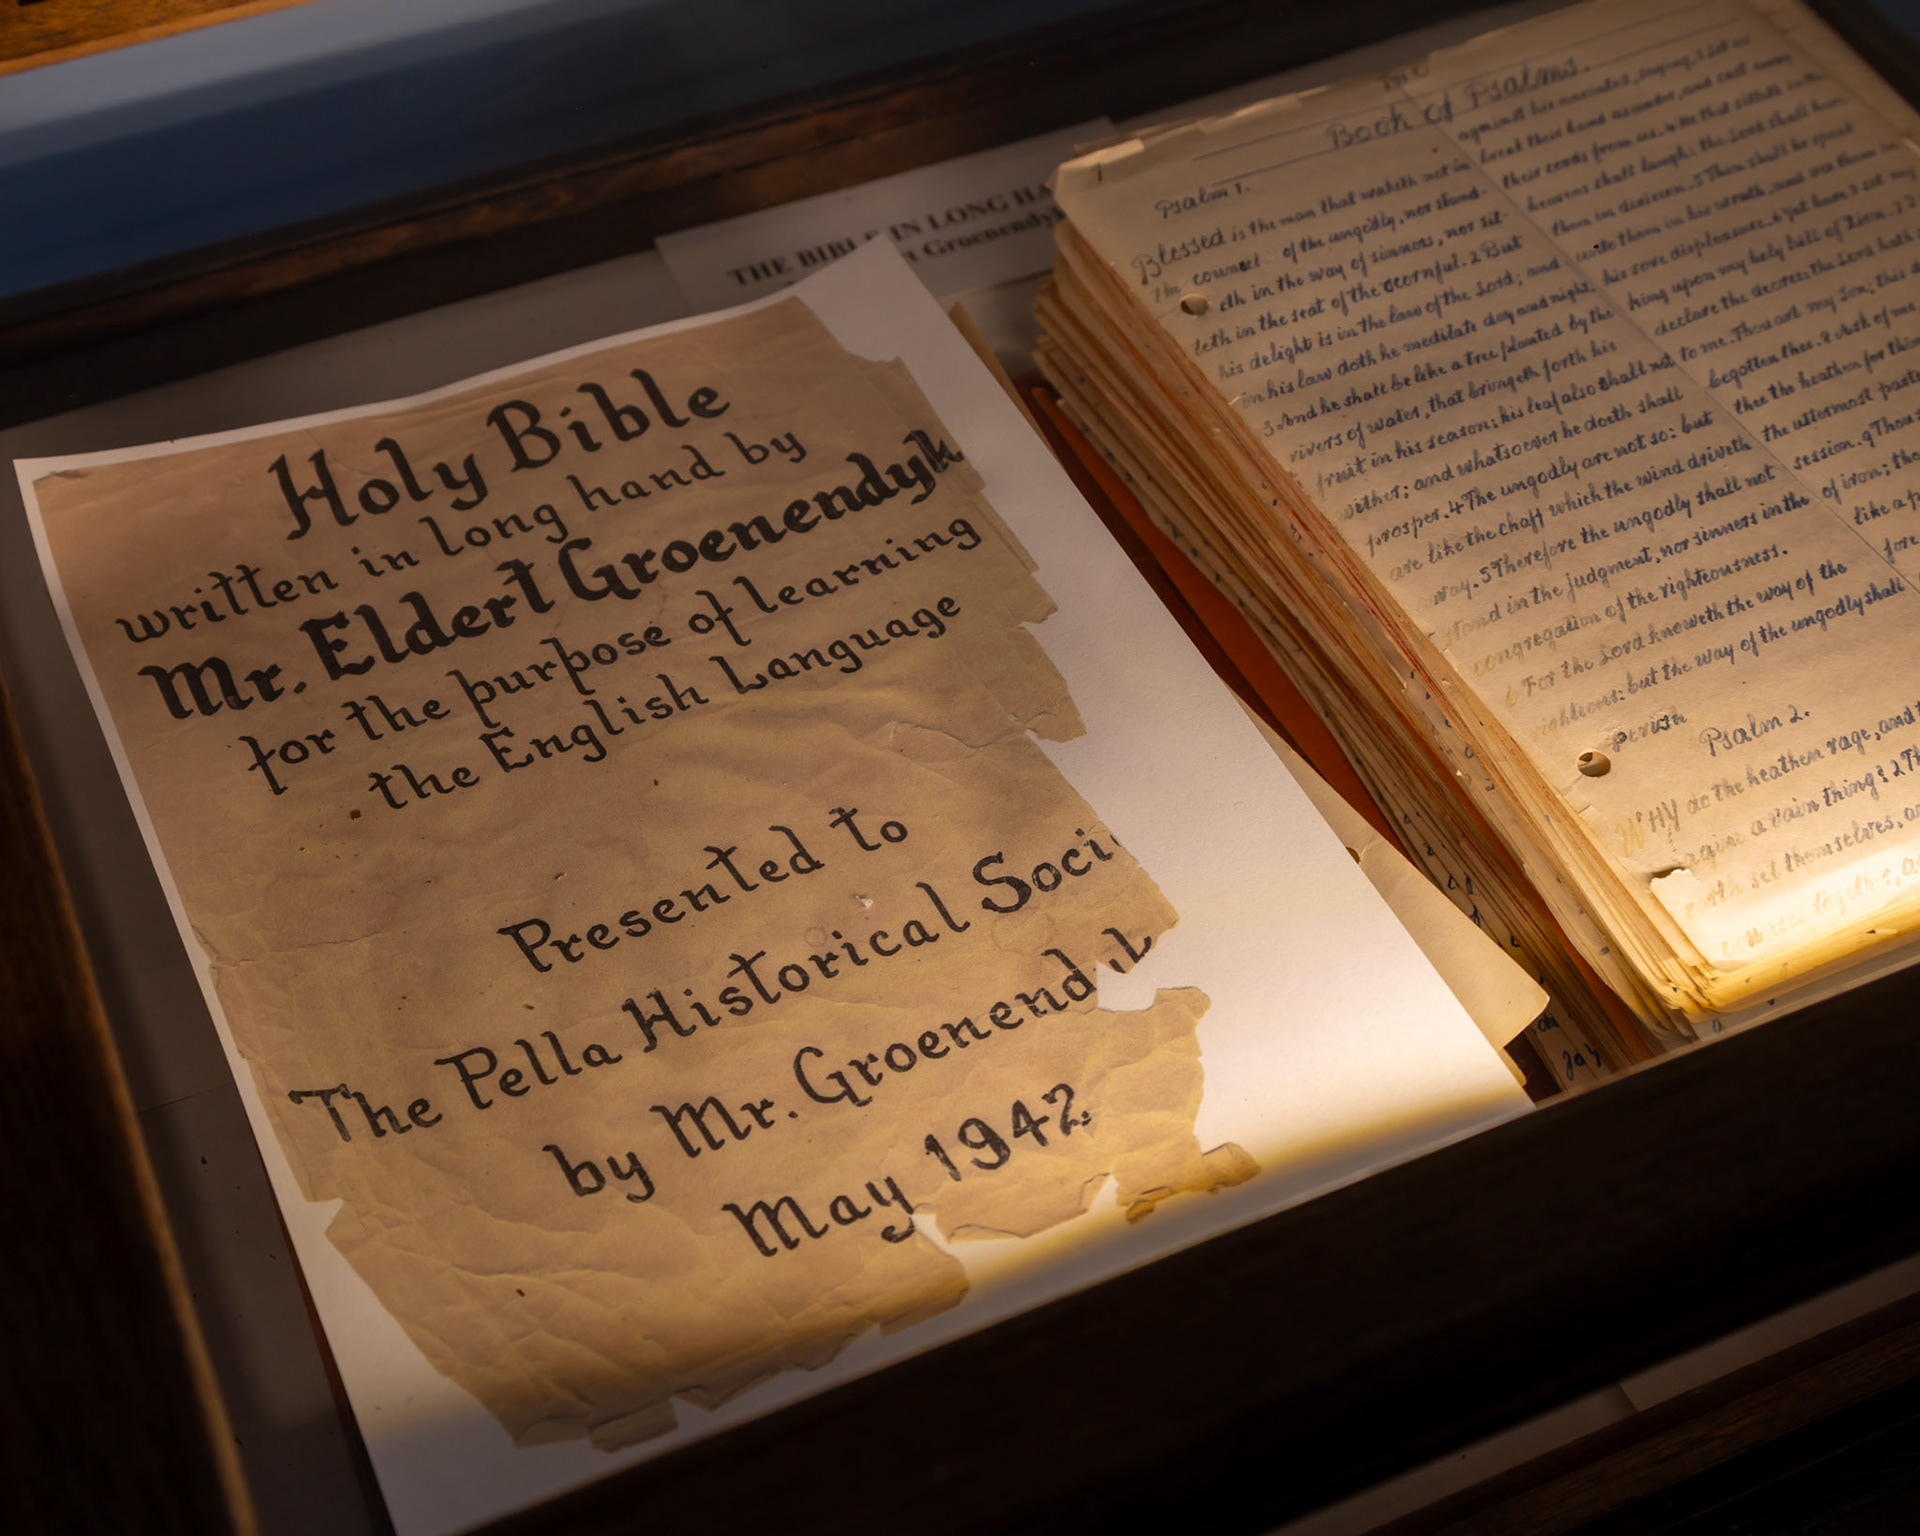 Holy Bible
written in long hand by
Mr. Eldert Groenendyk
for the purpose of learning
the English Language
Presented to
The Pella Historical Soci
by Mr. Groenend
May 1942
THE BIBLE IN LONG HA
Groenendyk
The
Book of Psalms.
1
Psalm 1.
Blessed is the man that walketh not in
the counsel of the ungodly, nor stand-
eth in the way of sinners, nor sit-
teth in the seat of the scornful. 2 But
his delight is in the law of the Lord; and
in his law doth he meditate day and night.
3 And he shall be like a tree planted by the
rivers of water, that bringeth forth his
fruit in his season; his leaf also shall not
wither; and whatsoever he doeth shall
prosper. 4 The ungodly are not so: but
are like the chaff which the wind driveth
away. 5 Therefore the ungodly shall not
stand in the judgment, nor sinners in the
congregation of the righteousness.
6 For the Lord knoweth the way of the
righteous: but the way of the ungodly shall
perish
Psalm 2.
WHY do the heathen rage, and
imagine a vain thing? 2 Th
earth set themselves,
against his anointed, saying, 3 Let us
break their band asunder, and cast away
their cords from us. 4 He that sitteth in the
heavens shall laugh: the Lord shall have
them in division. 5 Then shall he speak
unto them in his wrath, and vex them in
his sore displeasure. 6 Yet have I set my
king upon my holy hill of Zion. 7 I
declare the decree: the Lord hath
to me. Thou art my Son; this d
begotten thee. 8 Ask of me
thee the heathen for thin
the uttermost parts
session. 9 Thou
of iron; tho
like a p
fore